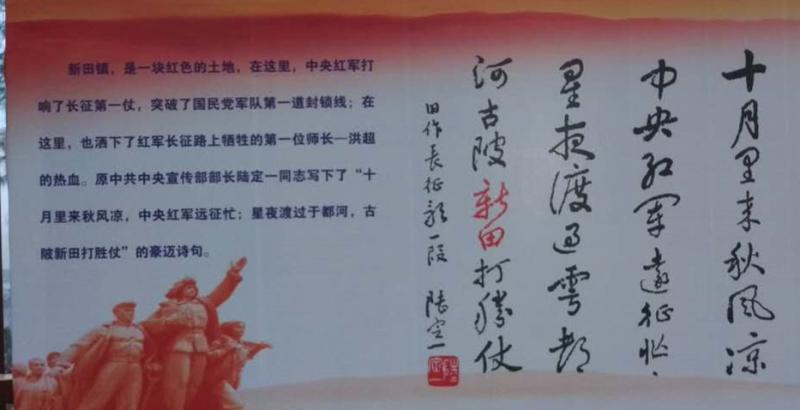 新田镇，是一块红色的土地，在这里，中央红军打
响了长征第一仗，突破了国民党军队第一道封锁线；在
这里，也洒下了红军长征路上牺牲的第一位师长—洪超
的热血。原中共中央宣传部部长陆定一同志写下了“十
月里来秋风凉，中央红军远征忙；星夜渡过于都河，古
陂新田打胜仗”的豪迈诗句。
十月里来秋风凉
中央红军远征忙
星夜渡过雩都
河古陂新田打勝仗
旧作長征歌一段
陸定一